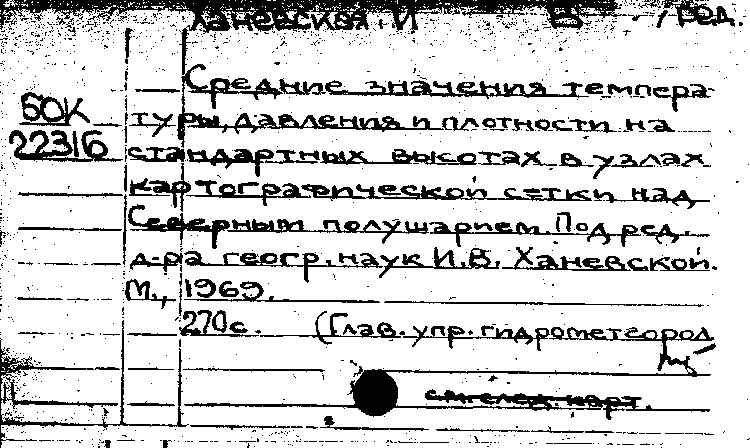 Ханевская, И В. / ред.
Средние значения темпера-
БОК туры, давления и плотности на
22316 стандартных высотах в узлах
картографической сетки над
Северным полушарием. Под ред.
д-ра геогр. наук И.В. Ханевской.
М., 1969.
270с. (Глав. упр. гидрометеорол